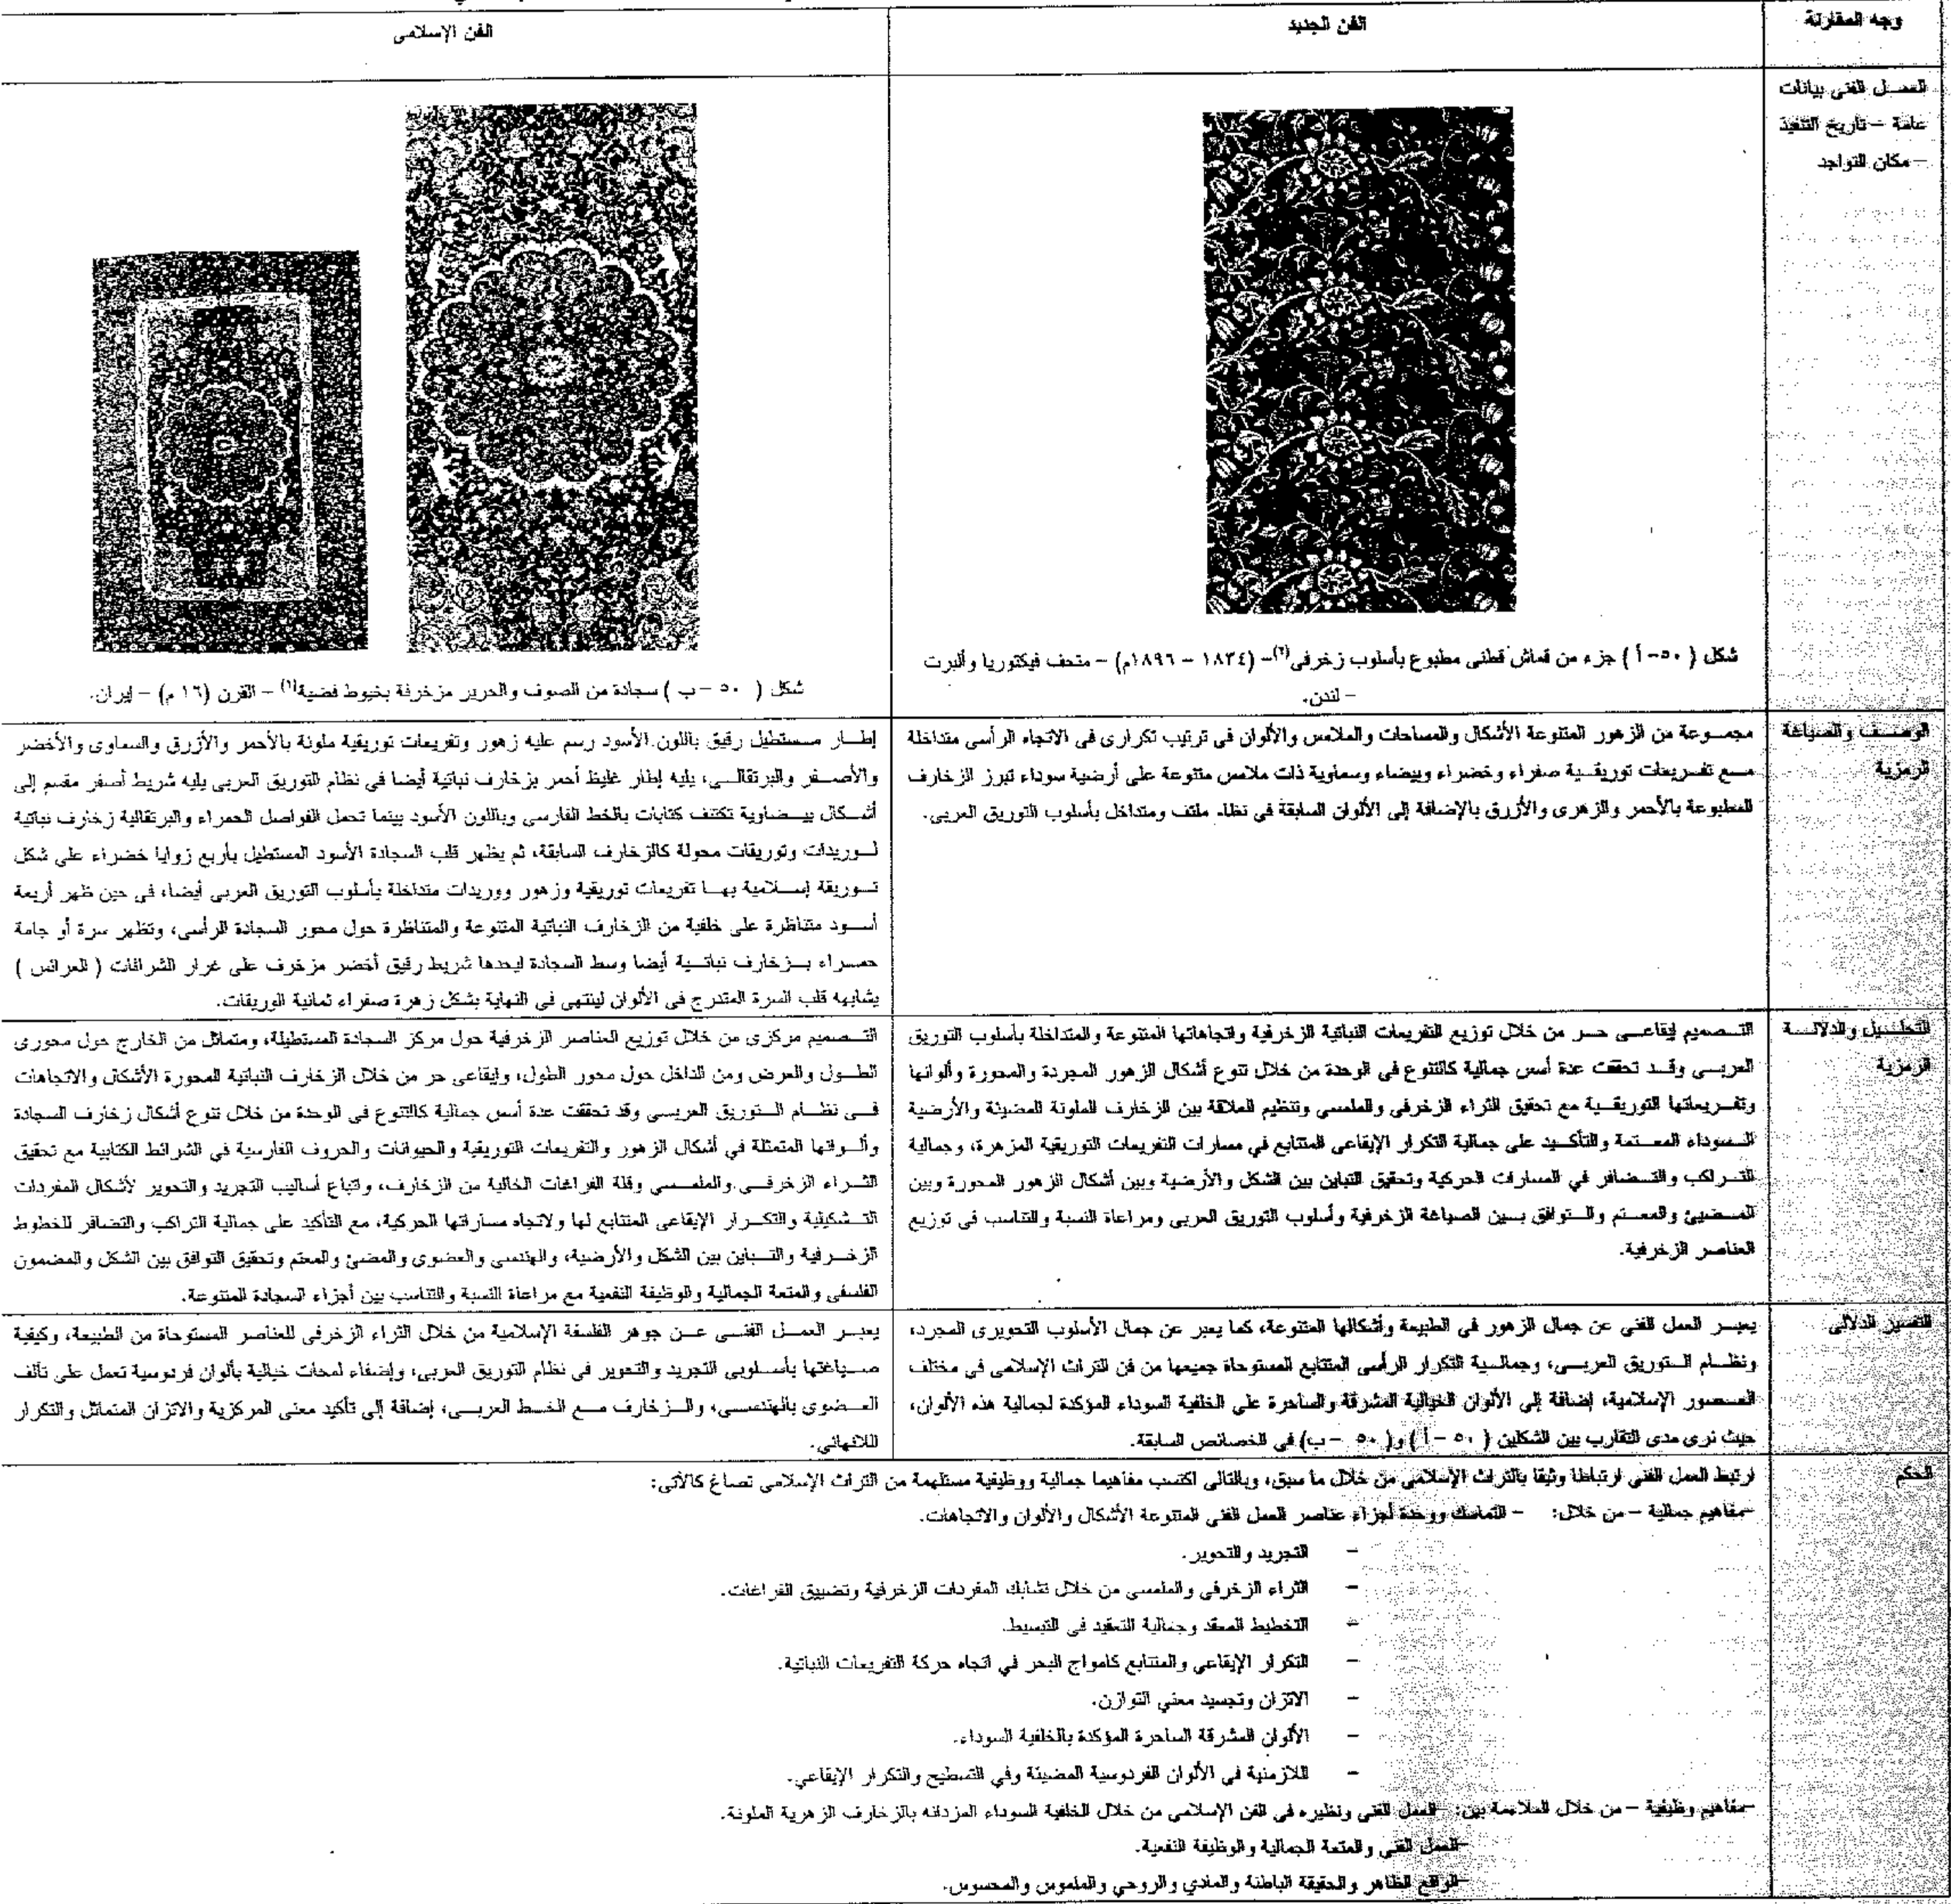 وجه المقارنة
الفن الجديد
الفن الإسلامى
العمـل الفنى بيانات
عامة – تاريخ التنفيذ
– مكان التواجد
شكل ( ٥٠-أ ) جزء من قماش قطنى مطبوع بأسلوب زخرفى(٢)– (١٨٣٤ – ١٨٩٦م) – متحف فيكتوريا وألبرت
– لندن.
شكل ( ٥٠ –ب ) سجادة من الصوف والحرير مزخرفة بخيوط فضية(١) – القرن (١٦ م) – إيران.
الوصـف والصياغة
الرمزية
مجمـوعة من الزهور المتنوعة الأشكال والمساحات والملامس والألوان في ترتيب تكرارى فى الاتجاه الرأسى متداخلة
مـع تفـريعات توريقـية صفراء وخضراء وبيضاء وسماوية ذات ملامس متنوعة على أرضية سوداء تبرز الزخارف
المطبوعة بالأحمر والزهرى والأزرق بالإضافة إلى الألوان السابقة في نظام ملتف ومتداخل بأسلوب التوريق العربى.
إطـار مـستطيل رقيق باللون الأسود رسم عليه زهور وتفريعات توريقية ملونة بالأحمر والأزرق والسماوى والأخضر
والأصـفر والبرتقالـي، يليه إطار غليظ أحمر بزخارف نباتية أيضا في نظام التوريق العربى يليه شريط أصفر مقسم إلى
أشـكال بيـضاوية تكتنف كتابات بالخط الفارسي وباللون الأسود بينما تحمل الفواصل الحمراء والبرتقالية زخارف نباتية
لـوريدات وتوريقات محولة كالزخارف السابقة، ثم يظهر قلب السجادة الأسود المستطيل بأربع زوايا خضراء على شكل
تـوريقة إسـلامية بهـا تفريعات توريقية وزهور ووريدات متداخلة بأسلوب التوريق العربى أيضا، فى حين ظهر أربعة
أسـود متناظرة على خلفية من الزخارف النباتية المتنوعة والمتناظرة حول محور السجادة الرأسى، وتظهر سرة أو جامة
حمـراء بـزخارف نباتـية أيضا وسط السجادة ليحدها شريط رقيق أخضر مزخرف على غرار الشرافات ( العرائس )
يشابهه قلب السرة المتدرج فى الألوان لينتهى فى النهاية بشكل زهرة صفراء ثمانية الوريقات.
التحلـيل والدلالـة
الرمزية
التـصميم إيقاعـى حـر من خلال توزيع التفريعات النباتية الزخرفية واتجاهاتها المتنوعة والمتداخلة بأسلوب التوريق
العربـى وقـد تحققت عدة أسس جمالية كالتنوع فى الوحدة من خلال تنوع أشكال الزهور المجردة والمحورة وألوانها
وتفـريعاتها التوريقـية مع تحقيق الثراء الزخرفى والملمسى وتنظيم العلاقة بين الزخارف الملونة المضيئة والأرضية
الـسوداء المعـتمة والتأكـيد على جمالية التكرار الإيقاعى المتتابع في مسارات التفريعات التوريقية المزهرة، وجمالية
التـراكب والتـضافر في المسارات الحركية وتحقيق التباين بين الشكل والأرضية وبين أشكال الزهور المحورة وبين
المـضيئ والمعـتم والـتوافق بـين الصياغة الزخرفية وأسلوب التوريق العربى ومراعاة النسبة والتناسب فى توزيع
العناصر الزخرفية.
التـصميم مركزى من خلال توزيع العناصر الزخرفية حول مركز السجادة المستطيلة، ومتماثل من الخارج حول محورى
الطـول والعرض ومن الداخل حول محور الطول، وإيقاعى حر من خلال الزخارف النباتية المحورة الأشكال والاتجاهات
فـى نظـام الـتوريق العربـى وقد تحققت عدة أسس جمالية كالتنوع في الوحدة من خلال تنوع أشكال زخارف السجادة
وألـوانها المتمثلة في أشكال الزهور والتفريعات التوريقية والحيوانات والحروف الفارسية في الشرائط الكتابية مع تحقيق
الثـراء الزخرفـى والملمـسى وقلة الفراغات الخالية من الزخارف، واتباع أساليب التجريد والتحوير لأشكال المفردات
التـشكيلية والتكـرار الإيقاعى المتتابع لها ولاتجاه مساراتها الحركية، مع التأكيد على جمالية التراكب والتضافر للخطوط
الزخـرفية والتـباين بين الشكل والأرضية، والهندسى والعضوى والمضئ والمعتم وتحقيق التوافق بين الشكل والمضمون
الفلسفى والمتعة الجمالية والوظيفة النفعية مع مراعاة النسبة والتناسب بين أجزاء السجادة المتنوعة.
التفسير الدلالى
يعبـر العمل الفنى عن جمال الزهور فى الطبيعة وأشكالها المتنوعة، كما يعبر عن جمال الأسلوب التحويرى المجرد،
ونظـام الـتوريق العربـى، وجمالـية التكرار الرأسى المتتابع المستوحاة جميعها من فن التراث الإسلامى في مختلف
العـصور الإسلامية، إضافة إلى الألوان الخيالية المشرقة والساحرة على الخلفية السوداء المؤكدة لجمالية هذه الألوان،
حيث نرى مدى التقارب بين الشكلين ( ٥٠ –أ ) و( ٥٠ –ب) فى الخصائص السابقة.
يعبـر العمل الفنـى عـن جوهر الفلسفة الإسلامية من خلال الثراء الزخرفى للعناصر المستوحاة من الطبيعة، وكيفية
صـياغتها بأسـلوبى التجريد والتحوير في نظام التوريق العربى، وإضفاء لمحات خيالية بألوان فردوسية تعمل على تآلف
العـضوى بالهندسـى، والـزخارف مـع الخـط العربـى، إضافة إلى تأكيد معنى المركزية والاتزان المتماثل والتكرار
اللانهائى.
الحكم
ارتبط العمل الفنى ارتباطا وثيقا بالتراث الإسلامى من خلال ما سبق، وبالتالى اكتسب مفاهيما جمالية ووظيفية مستلهمة من التراث الإسلامى تصاغ كالآتى:
–مفاهيم جمالية – من خلال: – التماسك ووحدة أجزاء عناصر العمل الفنى المتنوعة الأشكال والألوان والاتجاهات.
– التجريد والتحوير.
– الثراء الزخرفى والملمسى من خلال تشابك المفردات الزخرفية وتضييق الفراغات.
– التخطيط المعقد وجمالية التعقيد فى التبسيط.
– التكرار الإيقاعي والمتتابع كامواج البحر في اتجاه حركة التفريعات النباتية.
– الاتزان وتجسيد معني التوازن.
– الألوان المشرقة الساحرة المؤكدة بالخلفية السوداء.
– اللازمنية في الألوان الفردوسية المضيئة وفي التسطيح والتكرار الإيقاعي.
–مفاهيم وظيفية – من خلال الملاءمة بين: –العمل الفني ونظيره في الفن الإسلامي من خلال الخلفية السوداء المزدانه بالزخارف الزهرية الملونة.
–العمل الفني والمتعة الجمالية والوظيفة النفعية.
–الواقع الظاهر والحقيقة الباطنة والمادي والروحي والملموس والمحسوس.